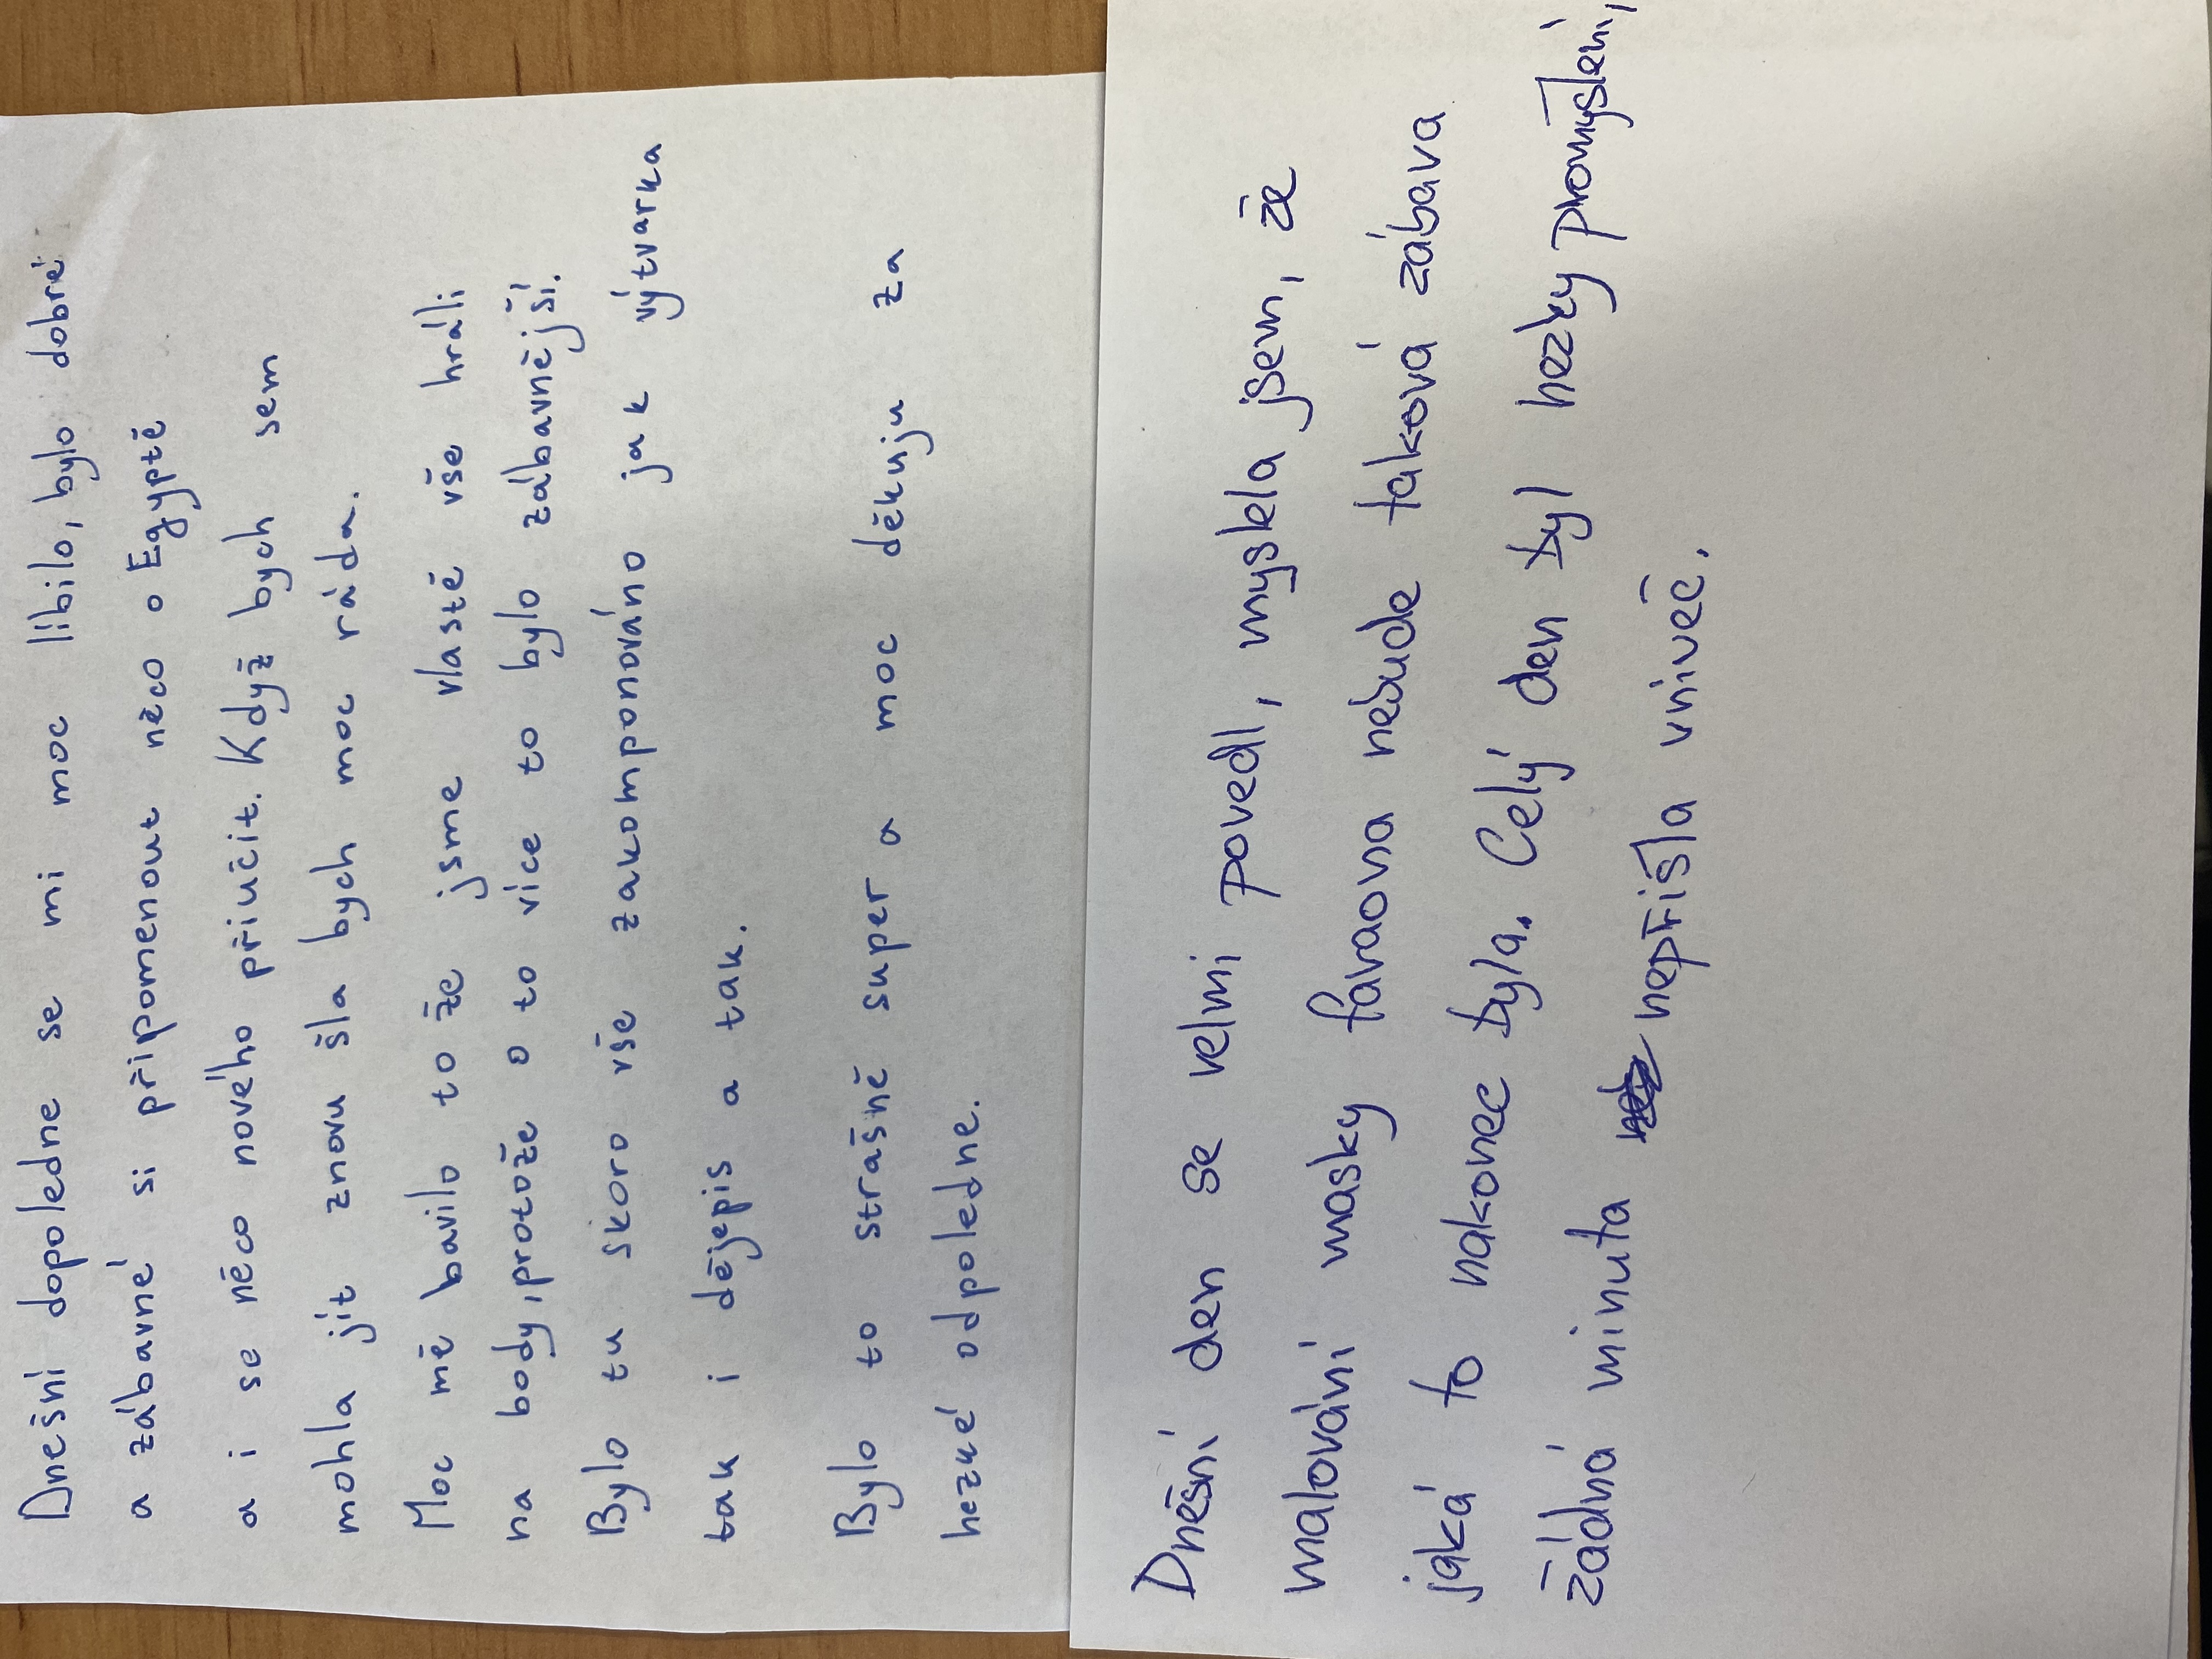 Dnešní dopoledne se mi moc líbilo, bylo dobré
a zábavné si připomenout něco o Egyptě
a i se něco nového přiučit. Když bych sem
mohla jít znovu šla bych moc ráda.
Moc mě bavilo to že jsme vlastě vše hráli
na body, protože o to více to bylo zábavnější.
Bylo tu skoro vše zakomponováno jak výtvarka
tak i dějepis a tak.
Bylo to strašně super a moc děkuju za
hezké odpoledne.
Dnešní den se velmi povedl, myslela jsem, že
malování masky faraona nebude taková zábava
jaká to nakonec byla. Celý den byl hezky promyšlení,
žádná minuta nepřišla vniveč.